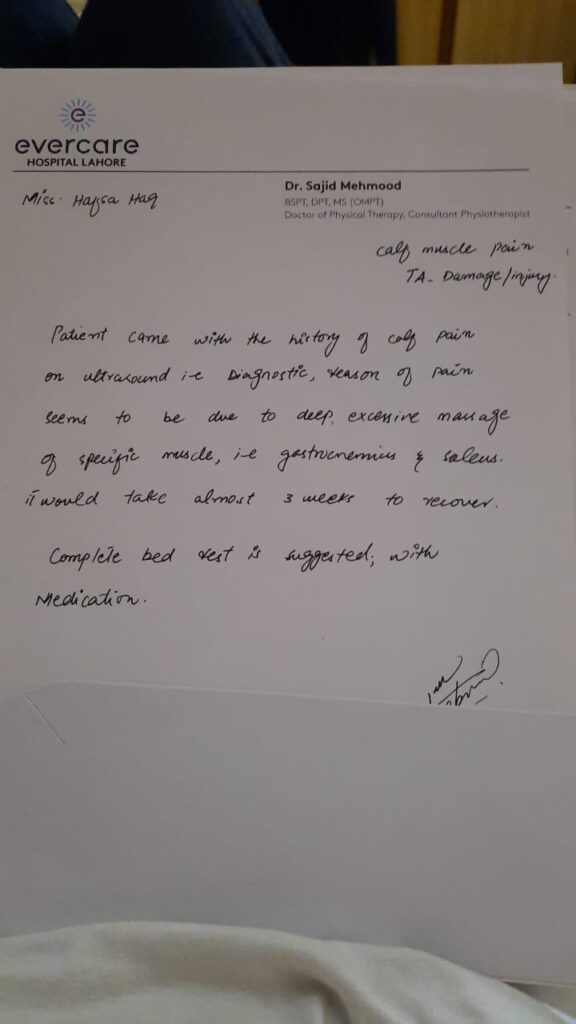 e
evercare
HOSPITAL LAHORE
Dr. Sajid Mehmood
BSPT, DPT, MS (OMPT)
Doctor of Physical Therapy, Consultant Physiotherapist
Miss. Hafsa Haq
calf muscle pain
TA- Damage/injury.
Patient came with the history of calf pain
on ultrasound i-e Diagnostic, reason of pain
seems to be due to deep, excessive massage
of specific muscle, i-e gastrocnemius & soleus.
it would take almost 3 weeks to recover.
Complete bed rest is suggested, with
Medication.